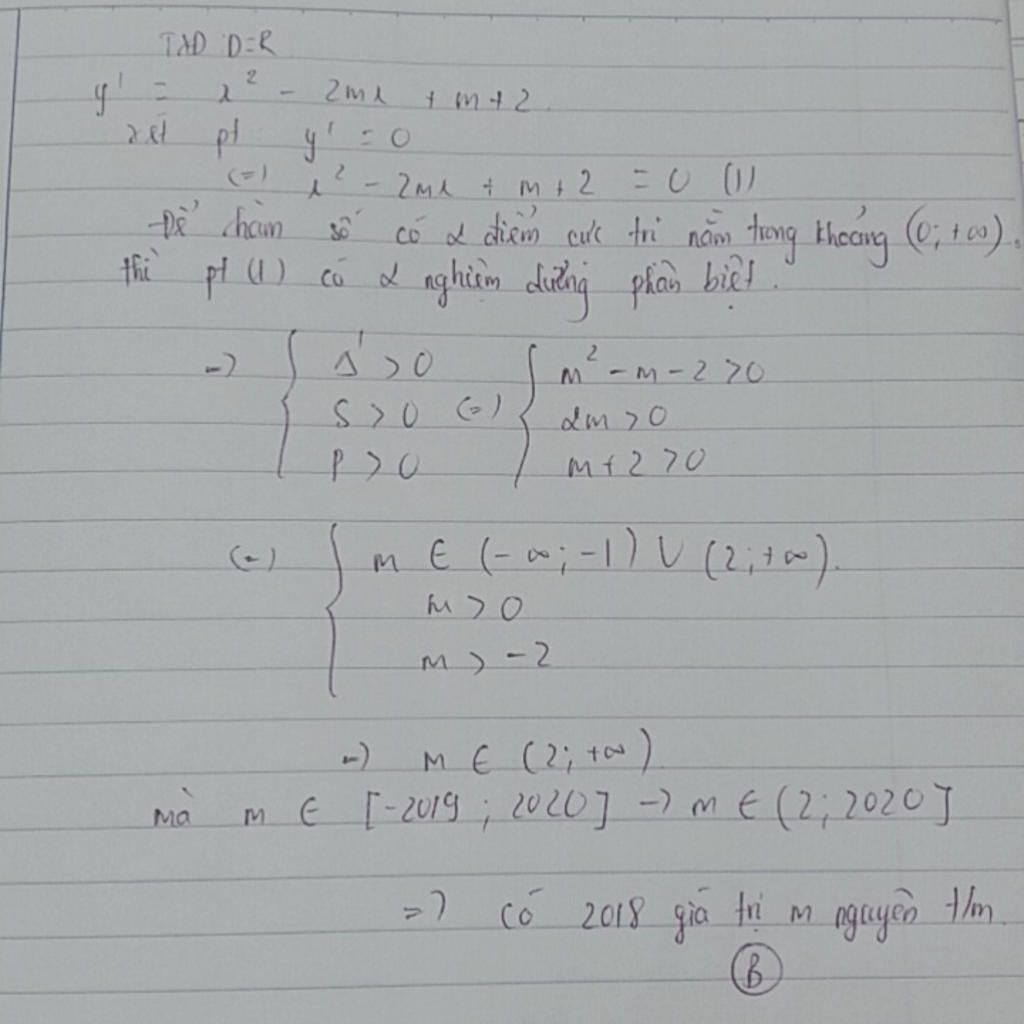 TXD D=R
y' = x² - 2mx + m + 2
xét pt y' = 0
(=) x² - 2mx + m + 2 = 0 (1)
-Để hàm số có 2 điểm cực trị nằm trong khoảng (0; +∞).
thì pt (1) có 2 nghiệm dương phân biệt.
-) { Δ' > 0 { m² - m - 2 > 0
S > 0 (=) 2m > 0
P > 0 m + 2 > 0
(=) { m ∈ (-∞; -1) U (2; +∞).
m > 0
m > -2
=) m ∈ (2; +∞)
mà m ∈ [-2019; 2020] -> m ∈ (2; 2020]
=) có 2018 giá trị m nguyên t/m.
B